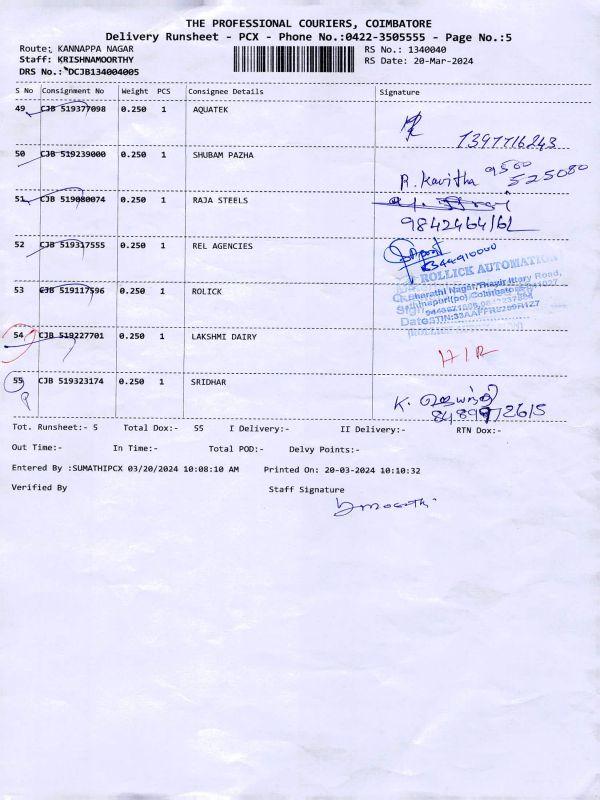 THE PROFESSIONAL COURIERS, COIMBATORE
Delivery Runsheet - PCX - Phone No.:0422-3505555 - Page No.:5
Route: KANNAPPA NAGAR RS No.: 1340040
Staff: KRISHNAMOORTHY RS Date: 20-Mar-2024
DRS No.: DCJB134004005
S No Consignment No Weight PCS Consignee Details Signature
49 CJB 519377098 0.250 1 AQUATEK
1397716243
50 CJB 519239000 0.250 1 SHUBAM PAZHA
R. Kavitha 9500 525080
51 CJB 519080074 0.250 1 RAJA STEELS
9842464162
52 CJB 519317555 0.250 1 REL AGENCIES
ROLLICK AUTOMATION
53 CJB 519117596 0.250 1 ROLICK
54 CJB 519227701 0.250 1 LAKSHMI DAIRY
55 CJB 519323174 0.250 1 SRIDHAR
K. ஜெயந்தி
8489972615
Tot. Runsheet:- 5 Total Dox:- 55 I Delivery:- II Delivery:- RTN Dox:-
Out Time:- In Time:- Total POD:- Delvy Points:-
Entered By :SUMATHIPCX 03/20/2024 10:08:10 AM Printed On: 20-03-2024 10:10:32
Verified By Staff Signature